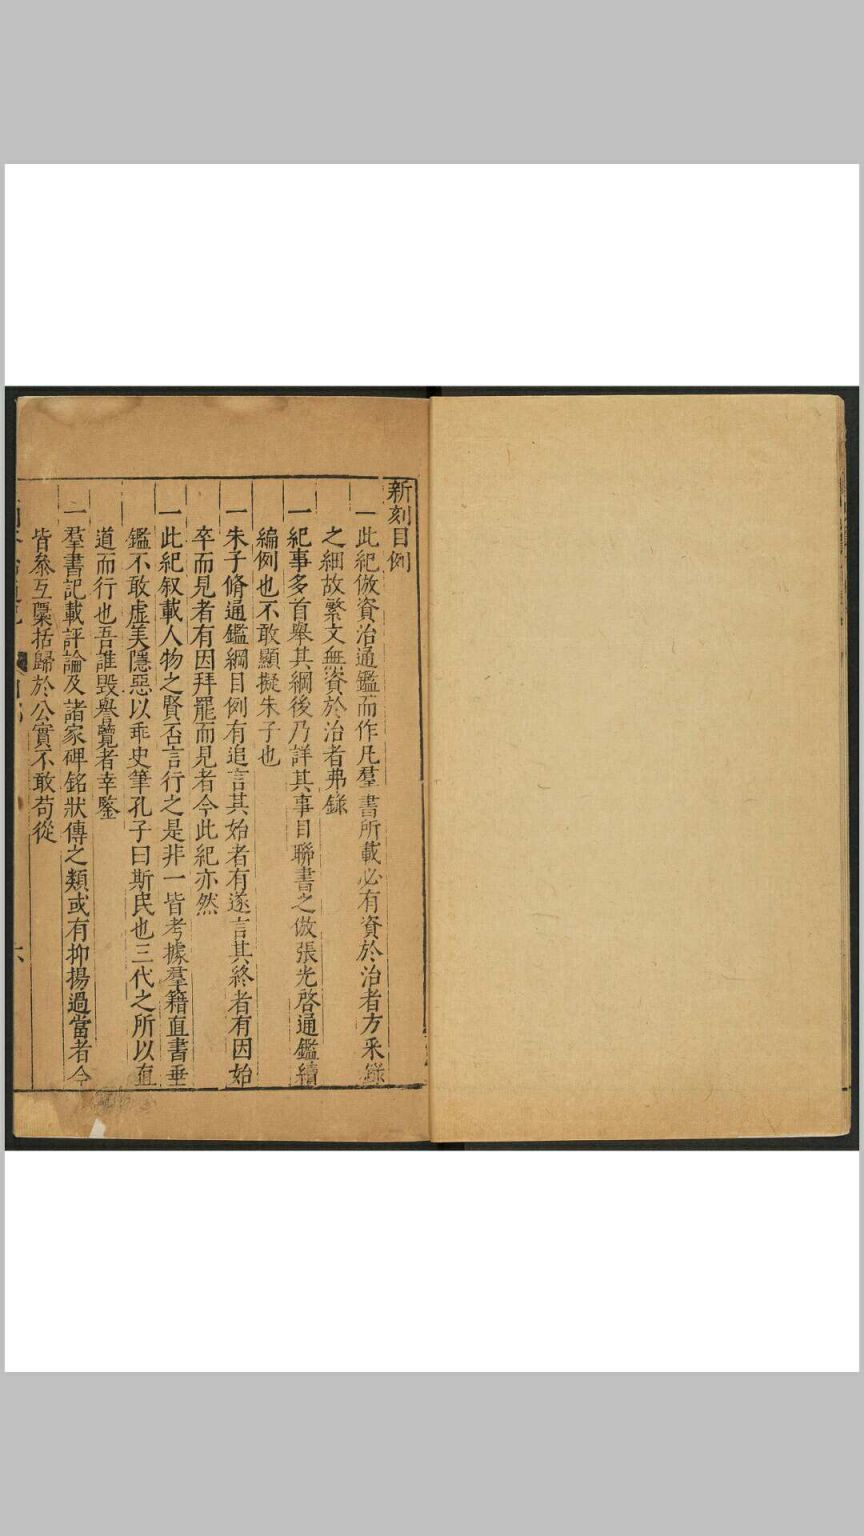 新刻目例
一此紀倣資治通鑑而作凡羣書所載必有資於治者方采錄
之細故繁文無資於治者弗錄
一紀事多首舉其綱後乃詳其事目聯書之倣張光啓通鑑續
編例也不敢顯擬朱子也
一朱子脩通鑑綱目例有追言其始者有遂言其終者有因始
卒而見者有因拜罷而見者今此紀亦然
一此紀叙載人物之賢否言行之是非一皆考據羣籍直書垂
鑑不敢虛美隱惡以乖史筆孔子曰斯民也三代之所以直
道而行也吾誰毀譽覽者幸鑒
一羣書記載評論及諸家碑銘狀傳之類或有抑揚過當者今
皆叅互檃括歸於公實不敢苟從